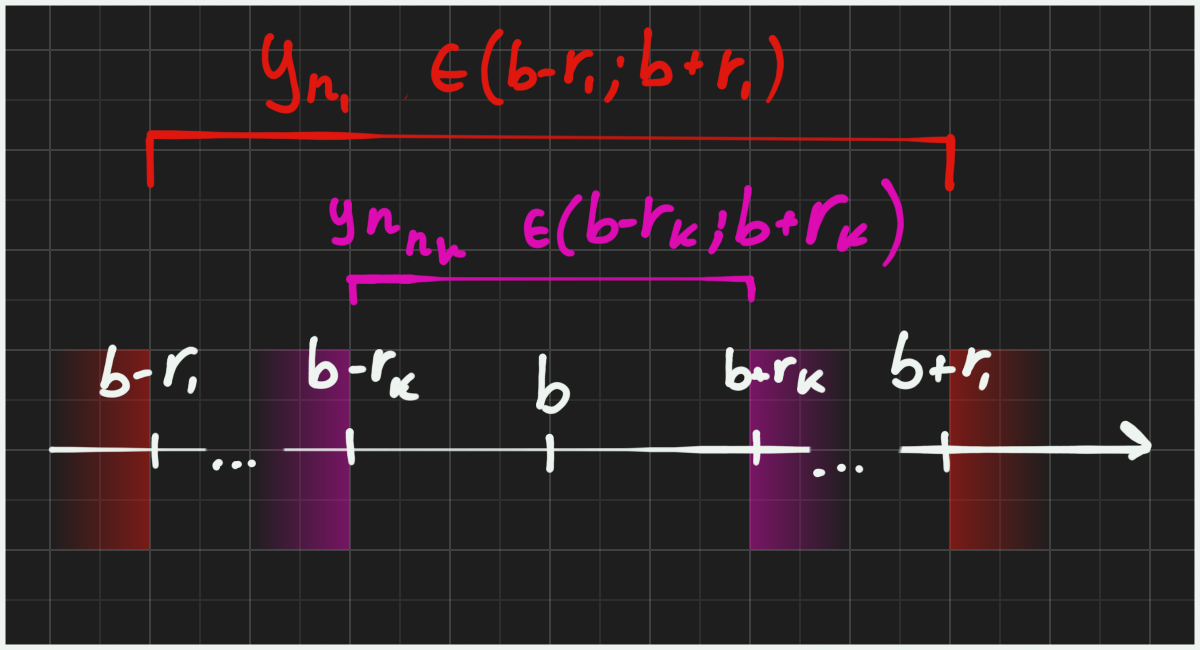 y_{n_1} ∈ (b-r_1; b+r_1)
y_{n_{n_k}} ∈ (b-r_k; b+r_k)
b-r_1 b-r_k b b+r_k b+r_1
... ...